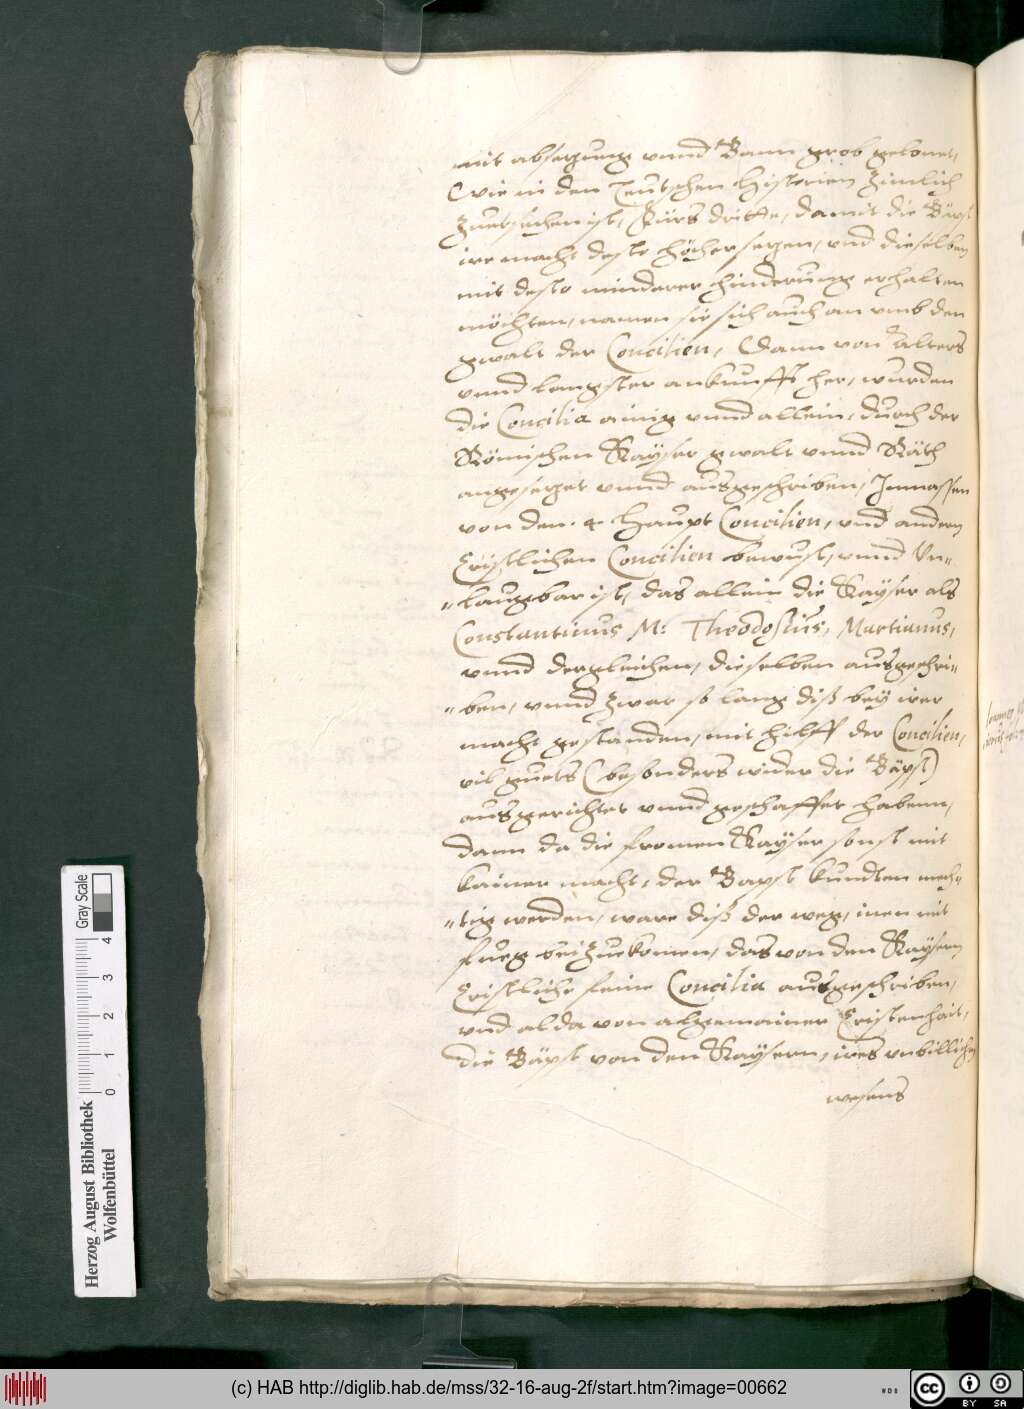 mit absezung vnnd Bann grob gelonet,
Wie in den Teutschen Historien zimlich
zuersehen ist, Fürs dritte, damit die Bäpst
ire macht desto höcher sezen, vnd dieselben
mit desto minderer hinderung erhalten
möchten, namen sie sich auch an vmb den
gwalt der Concilien, Dann von Alters
vnnd langster ankunfft her, wurden
die Concilia ainig vnnd allein, durch der
Römischen Kayser gwalt vnnd Räth
angesezet vnnd ausgeschriben, Inmassen
von den 4 Haupt Concilien, vnd andern
Cristlichen Concilien bewust, vnnd Un-
"laugbar ist, das allein die Kayser als
Constantinus M: Theodosius, Martianus,
vnnd dergleichen, dieselben ausgeschri"
"ben, vnnd zwar so lang diß bey irer
macht gestanden, mit hilff der Concilien,
vil guets (besonders wider die Bäpst)
ausgerichtet vnnd geschaffet habenn,
dann da die fromen Kayser sonst mit
kainer macht, der Bapst kundten mech"
"tig werden, ware diß der weg, inen mit
fueg beizuekomen, das von den Kaysern
Cristliche feine Concilia ausgeschriben,
vnd alda von algemainer Cristenhait,
die Bäpst von den Kaysern, ires vnbillichen
wesens
Gray Scale
0 1 2 3 4
Herzog August Bibliothek
Wolfenbüttel
(c) HAB http://diglib.hab.de/mss/32-16-aug-2f/start.htm?image=00662
WDB
cc BY SA